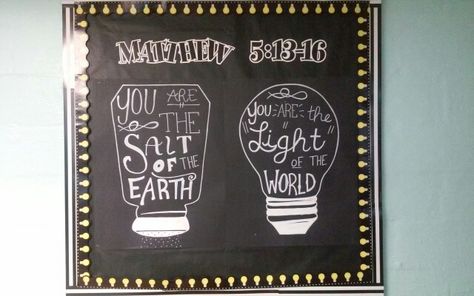 MATTHEW 5:13-16
YOU ARE
THE
SALT
OF THE
EARTH
YOU ARE the
"Light"
OF THE
WORLD